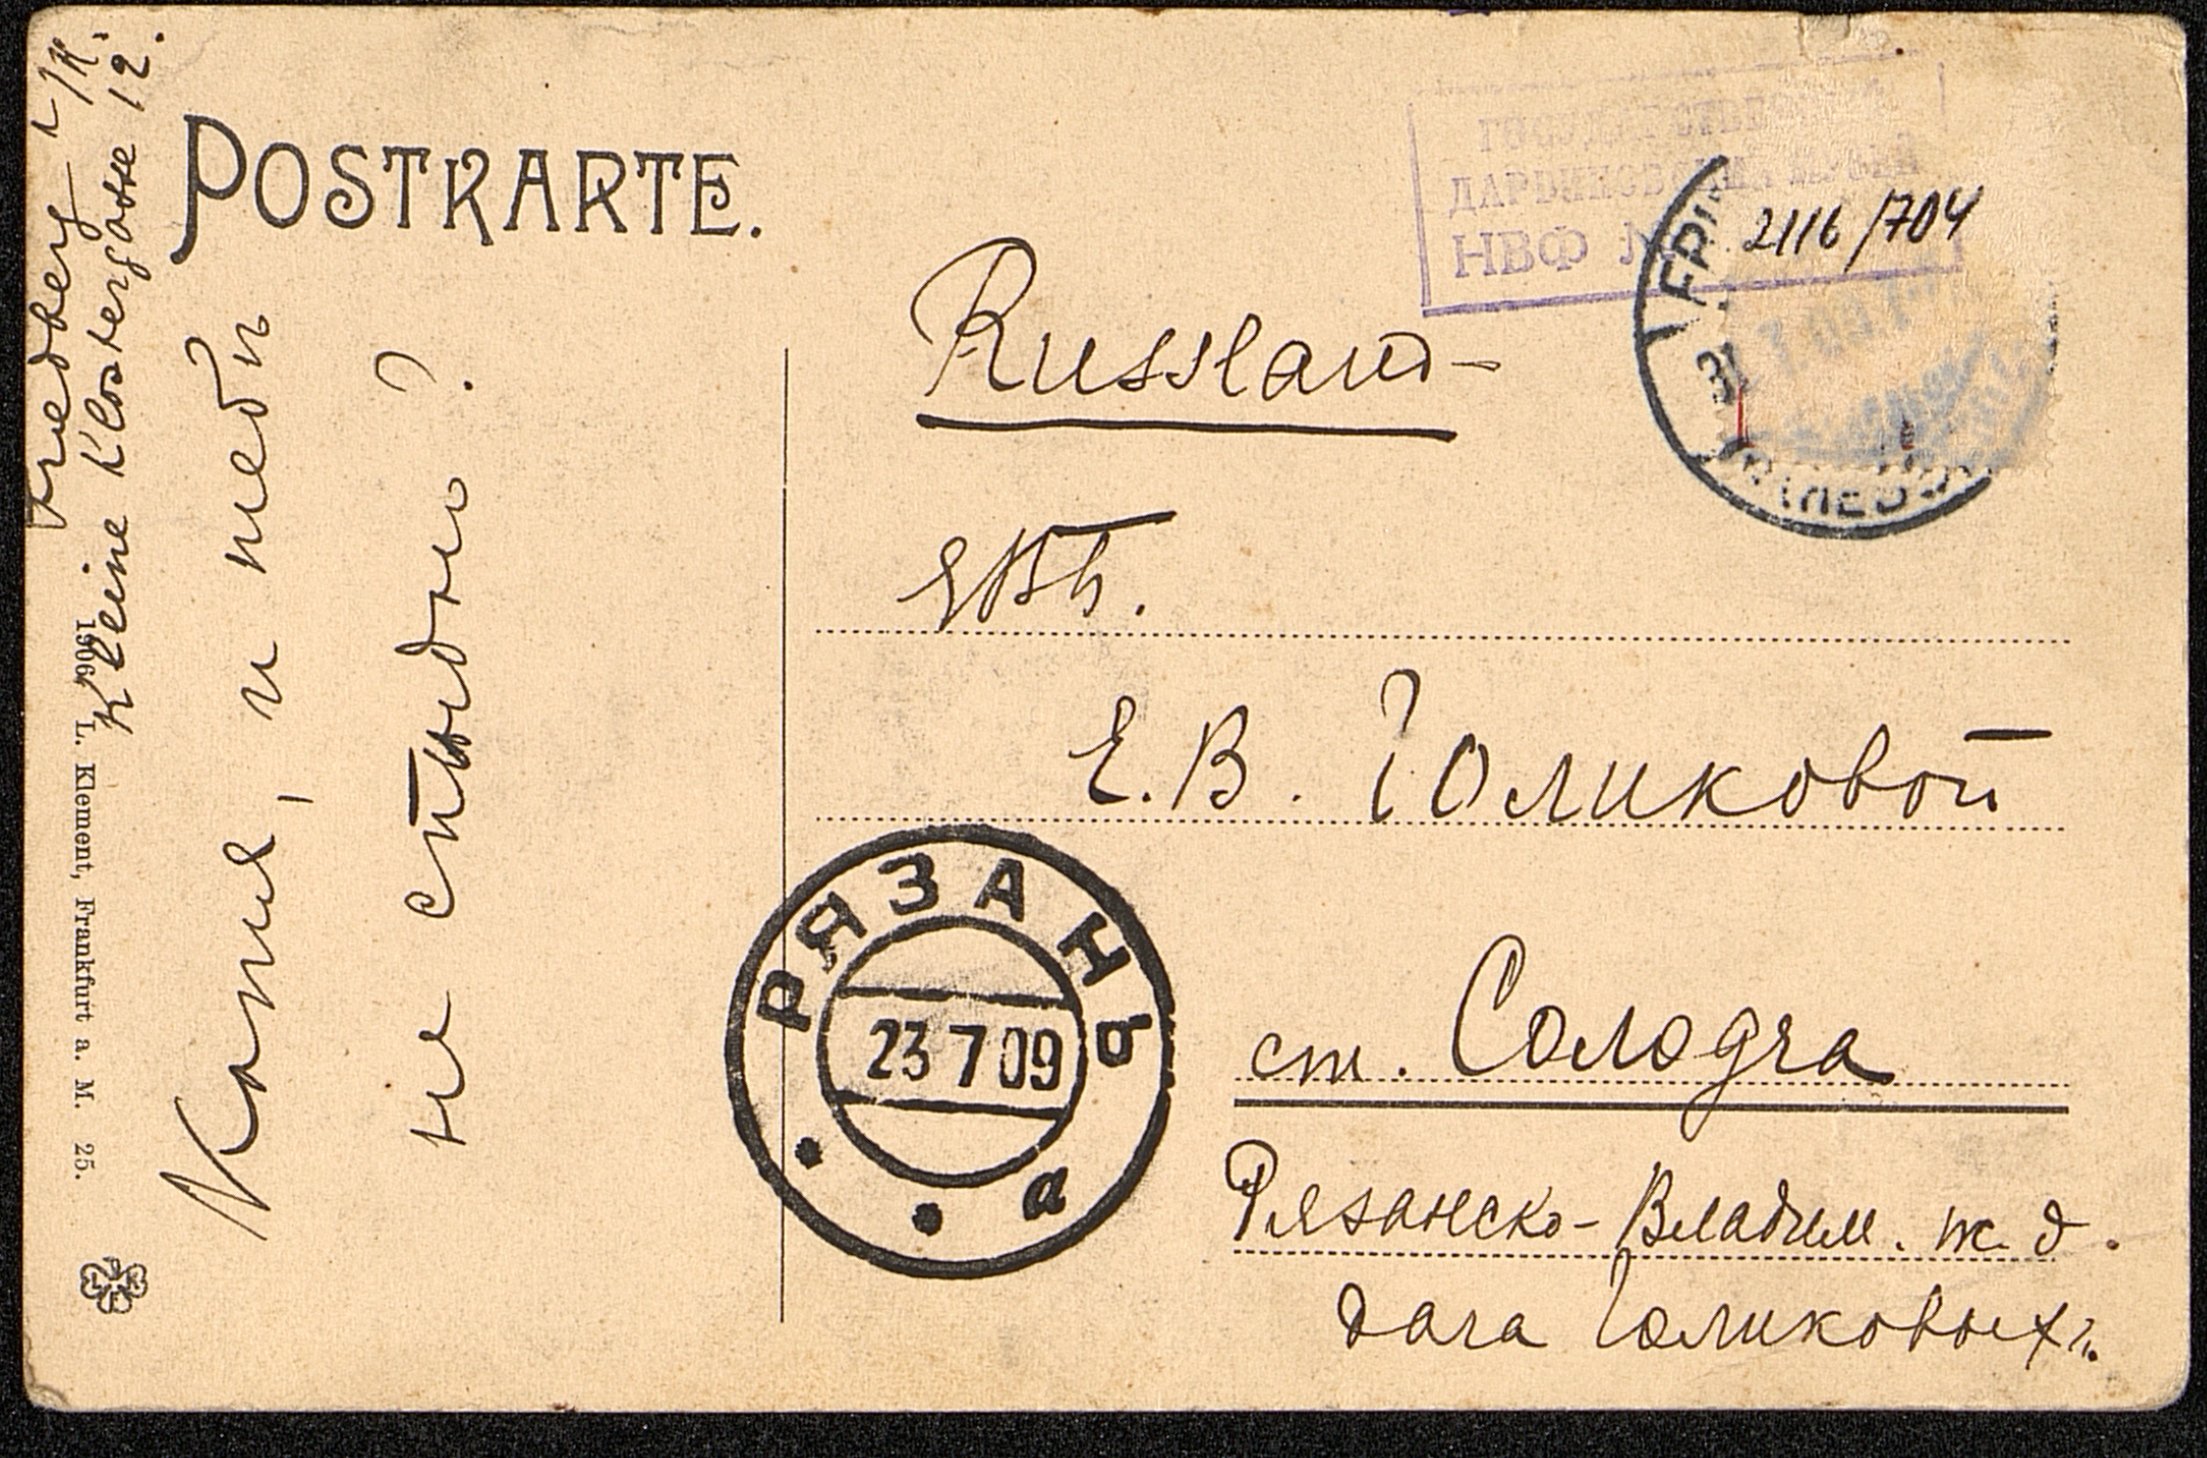 Friedberg i/H.
Kleine Klostergasse 12.
POSTKARTE.
Катя, и тебѣ
не стыдно?
1906. L. Klement, Frankfurt a. M. 25.
ГОСУДАРСТВЕННЫЙ
ДАРВИНОВСКИЙ МУЗЕЙ
НВФ № 2116/704
Russland
ЕВБ.
Е. В. Голиковой
ст. Солодча
Рязанско-Владим. ж. д.
дача Голиковыхъ.
РЯЗАНЬ
23 7 09
а